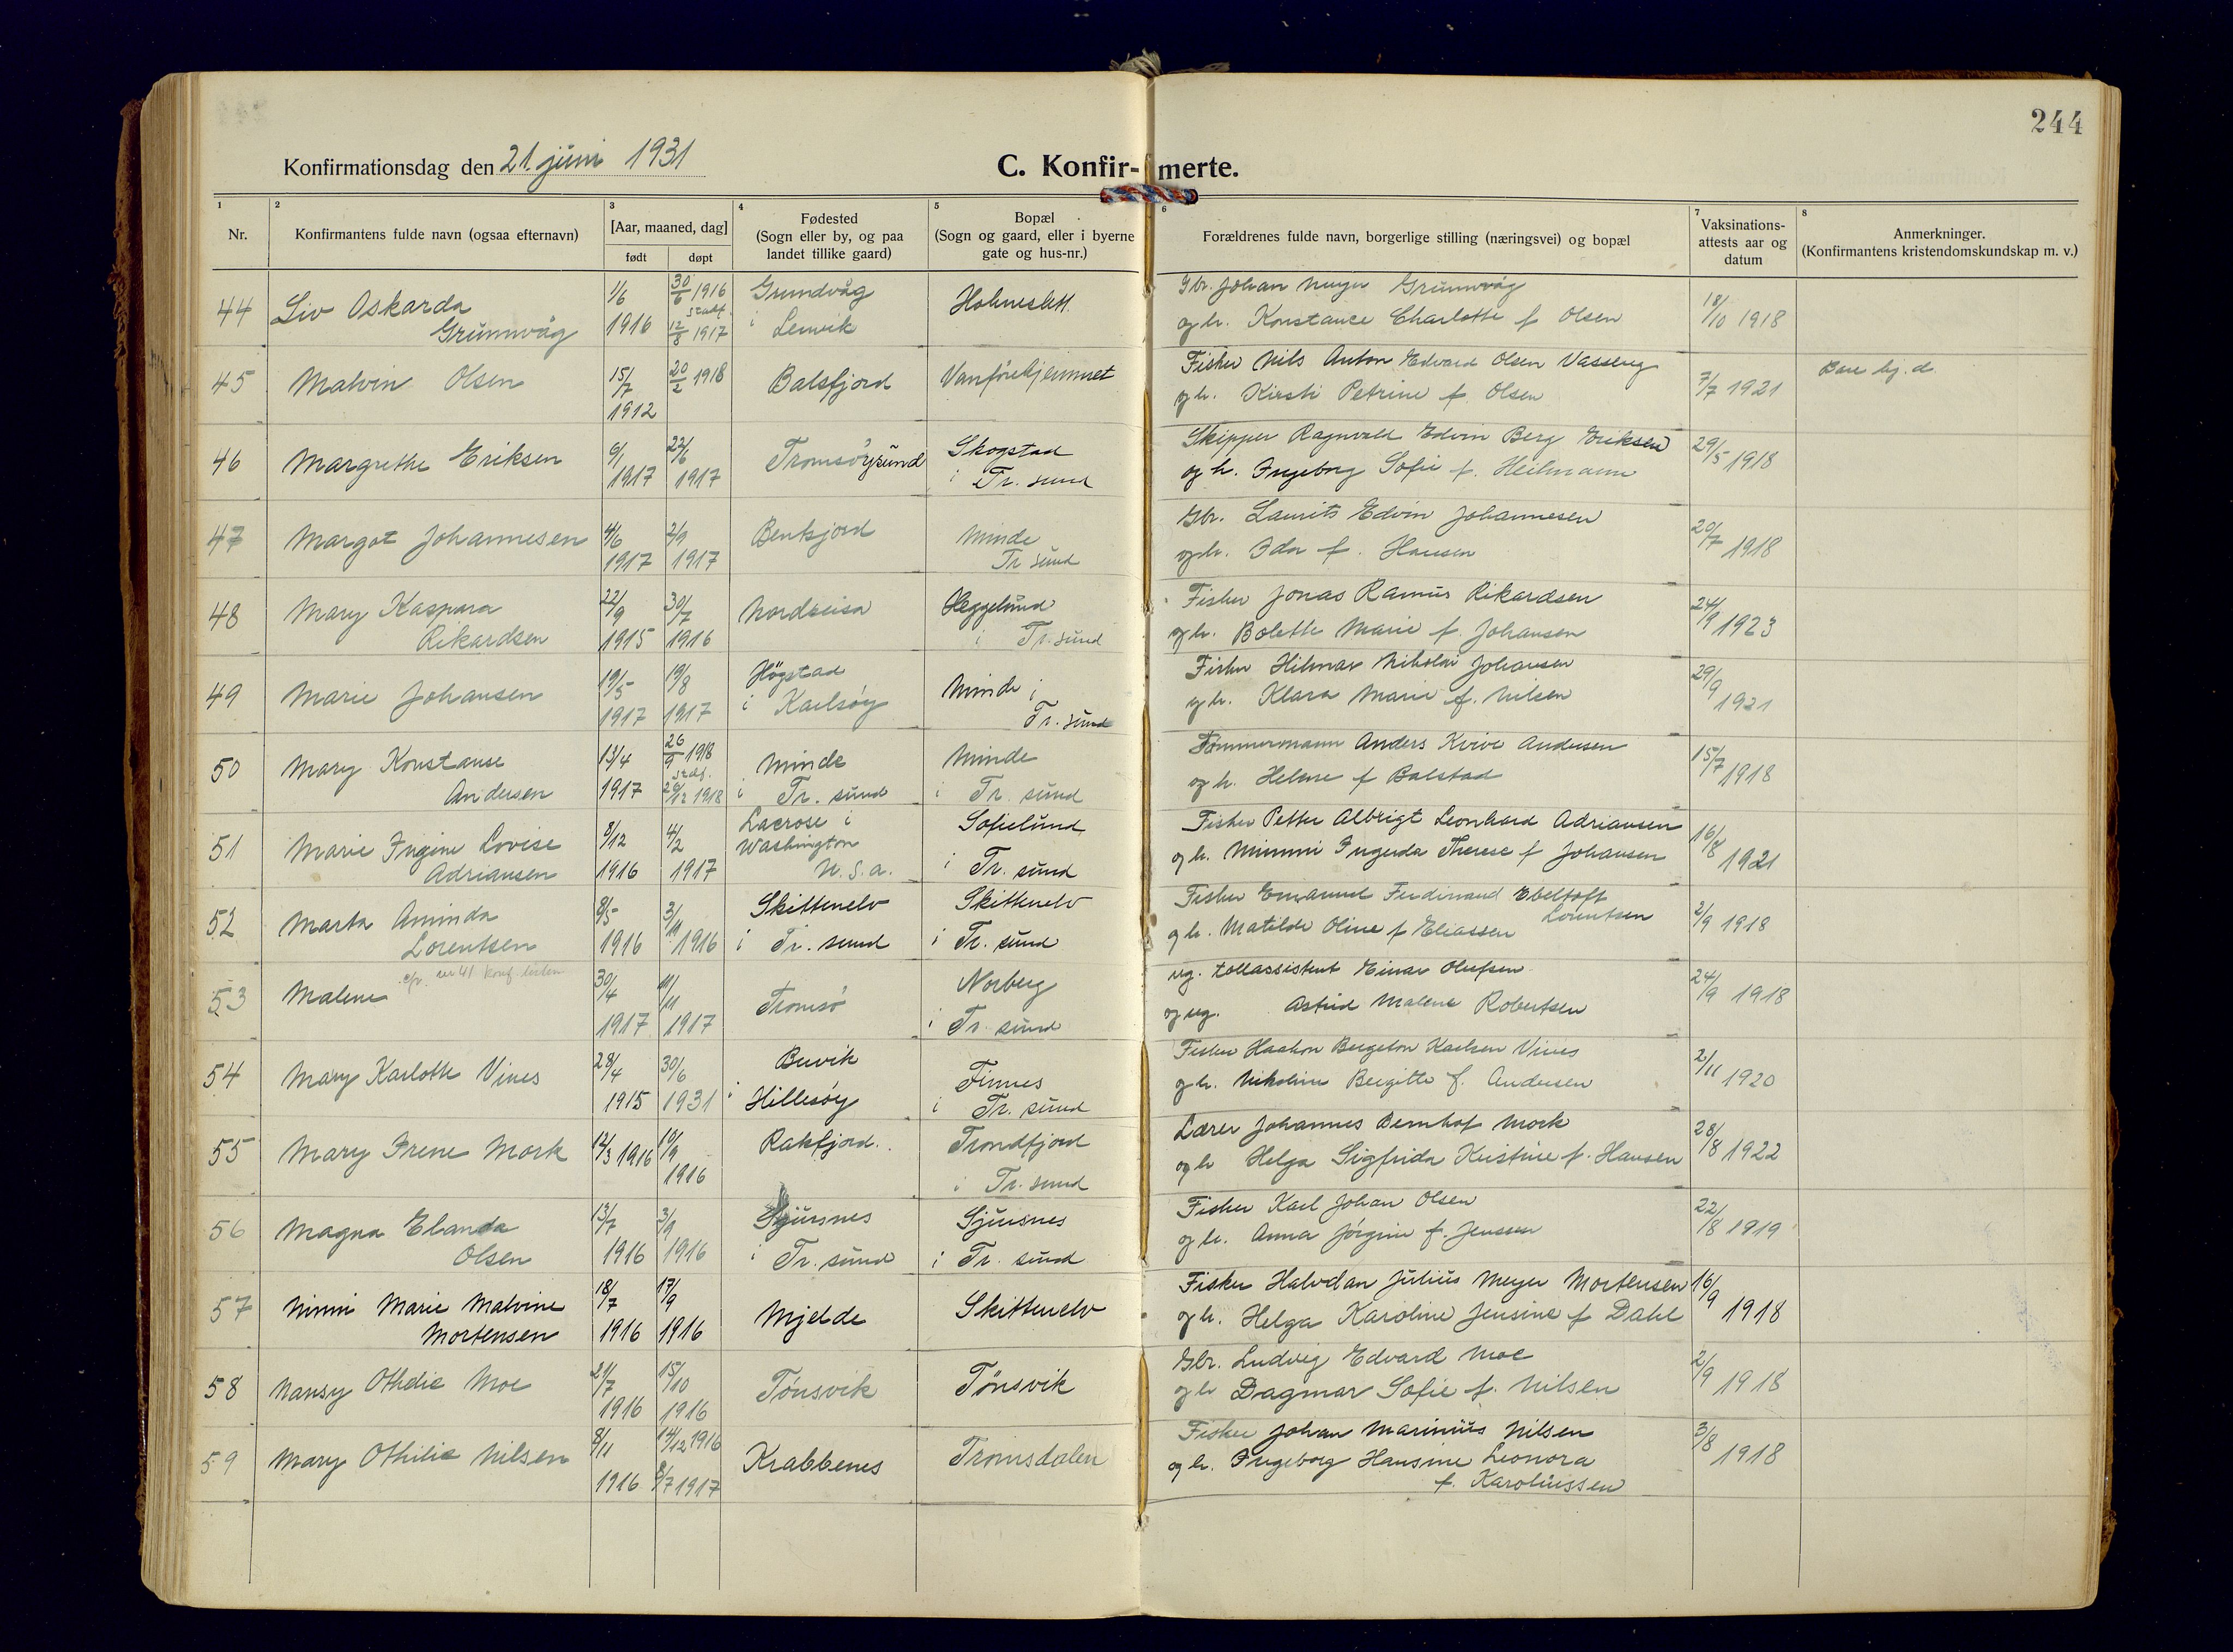 244
Konfirmationsdag den 21. juni 1931
C. Konfir-merte.
1 2 3 4 5 6 7 8
Nr.
Konfirmantens fulde navn (ogsaa efternavn)
[Aar, maaned, dag]
født døpt
Fødested
(Sogn eller by, og paa
landet tillike gaard)
Bopæl
(Sogn og gaard, eller i byerne
gate og hus-nr.)
Forældrenes fulde navn, borgerlige stilling (næringsvei) og bopæl
Vaksinations-
attests aar og
datum
Anmerkninger.
(Konfirmantens kristendomskundskap m. v.)
44 Liv Oskarda 1/6 30/6 1916 Grundvåg Holmeslett Gbr. Johan Meyer Grunnvåg 18/10 1918
Grunnvåg 1916 stadf. 12/8 1917 i Lenvik og h. Konstance Charlotte f Olsen
45 Malvin Olsen 15/7 20/2 1918 Balsfjord Vanförehjemmet Fisker Nils Anton Edvard Olsen Vasseng 7/7 1921 Bare hj. d.
1912 og h. Kirsti Petrine f. Olsen
46 Margrethe Eriksen 9/1 22/6 Tromsöysund Skogstad Skipper Ragnvald Edvin Berg Eriksen 29/5 1918
1917 1917 i Tr. sund og h. Ingeborg Sofie f. Heilmann
47 Margot Johannesen 4/6 2/9 Bentsjord Minde Gbr. Laurits Edvin Johannesen 20/7 1918
1917 1917 Tr sund og h. Ida f. Hansen
48 Mary Kaspara 22/9 30/7 Nordreisa Heggelund Fisker Jonas Ramus Rikardsen 24/9 1923
Rikardsen 1915 1916 i Tr. sund og h. Bolette Marie f. Johansen
49 Marie Johansen 19/5 19/8 Högstad Minde i Fisker Hilmar Nikolai Johansen 29/9
1917 1917 i Karlsöy Tr. sund og h. Klara Marie f. Nilsen 1921
50 Mary Konstanse 13/4 26/9 1918 Minde Minde Tömmermann Anders Kvive Andersen 15/7 1918
Andersen 1917 stdf. 26/12 1918 i Tr. sund i Tr. sund og h. Helene f Balstad
51 Marie Ingine Lovise 8/12 4/2 Lacrose i Washington Sofielund Fisker Petter Albrigt Leonhard Adriansen 16/8
Adriansen 1916 1917 U. S. a. i Tr. sund og h. Mimmi Ingerda Therese f Johansen 1921
52 Marta Aminda 8/5 3/11 Skittenelv Skittenelv Fisker Emanuel Ferdinand Ebeltoft Lorentsen 2/9 1918
Lorentsen 1916 1916 i Tr. sund i Tr. sund og h. Matilde Oline f Eliassen
53 Malene cfr. nr 41 konf. listen 30/4 11/11 Tromsö Norberg ug. tollassistent Einar Olufsen 24/9 1918
1917 1917 i Tr. sund og ug. Astrid Malene Robertsen
54 Mary Karlotte Vines 28/4 30/6 Buvik Finnes Fisker Haakon Bergeton Karlsen Vines 2/11 1920
1915 1931 i Hillesöy i Tr. sund og h. Nikoline Bergitte f. Andersen
55 Mary Irene Mork 12/3 1916 10/9 Rakfjord. Trondfjord Lærer Johannes Bernhof Mork 28/8 1922
1916 i Tr. sund og h Helga Sigfrida Kristine f. Hansen
56 Magna Elanda 13/7 3/9 Sjursnes Sjursnes Fisker Karl Johan Olsen 22/8 1919
Olsen 1916 1916 i Tr. sund i Tr. sund og h. Anna Jörgine f. Jensen
57 Ninni Marie Malvine 18/7 17/9 Mjelde Skittenelv Fisker Halvdan Julius Meyer Mortensen 16/9
Mortensen 1916 1916 og h. Helga Karoline Jensine f Dahl 1918
58 Nansy Othdie Moe 21/7 15/10 Tönsvik Tönsvik Gbr. Ludvig Edvard Moe 2/9 1918
1916 1916 og h Dagmar Sofie f. Nilsen
59 Mary Othilie Nilsen 8/11 14/12 1916 Krabbenes Tromsdalen Fisker Johan Marinius Nilsen 3/8 1918
1916 8/7 1917 og h. Ingeborg Hansine Leonora
f. Karoliussen